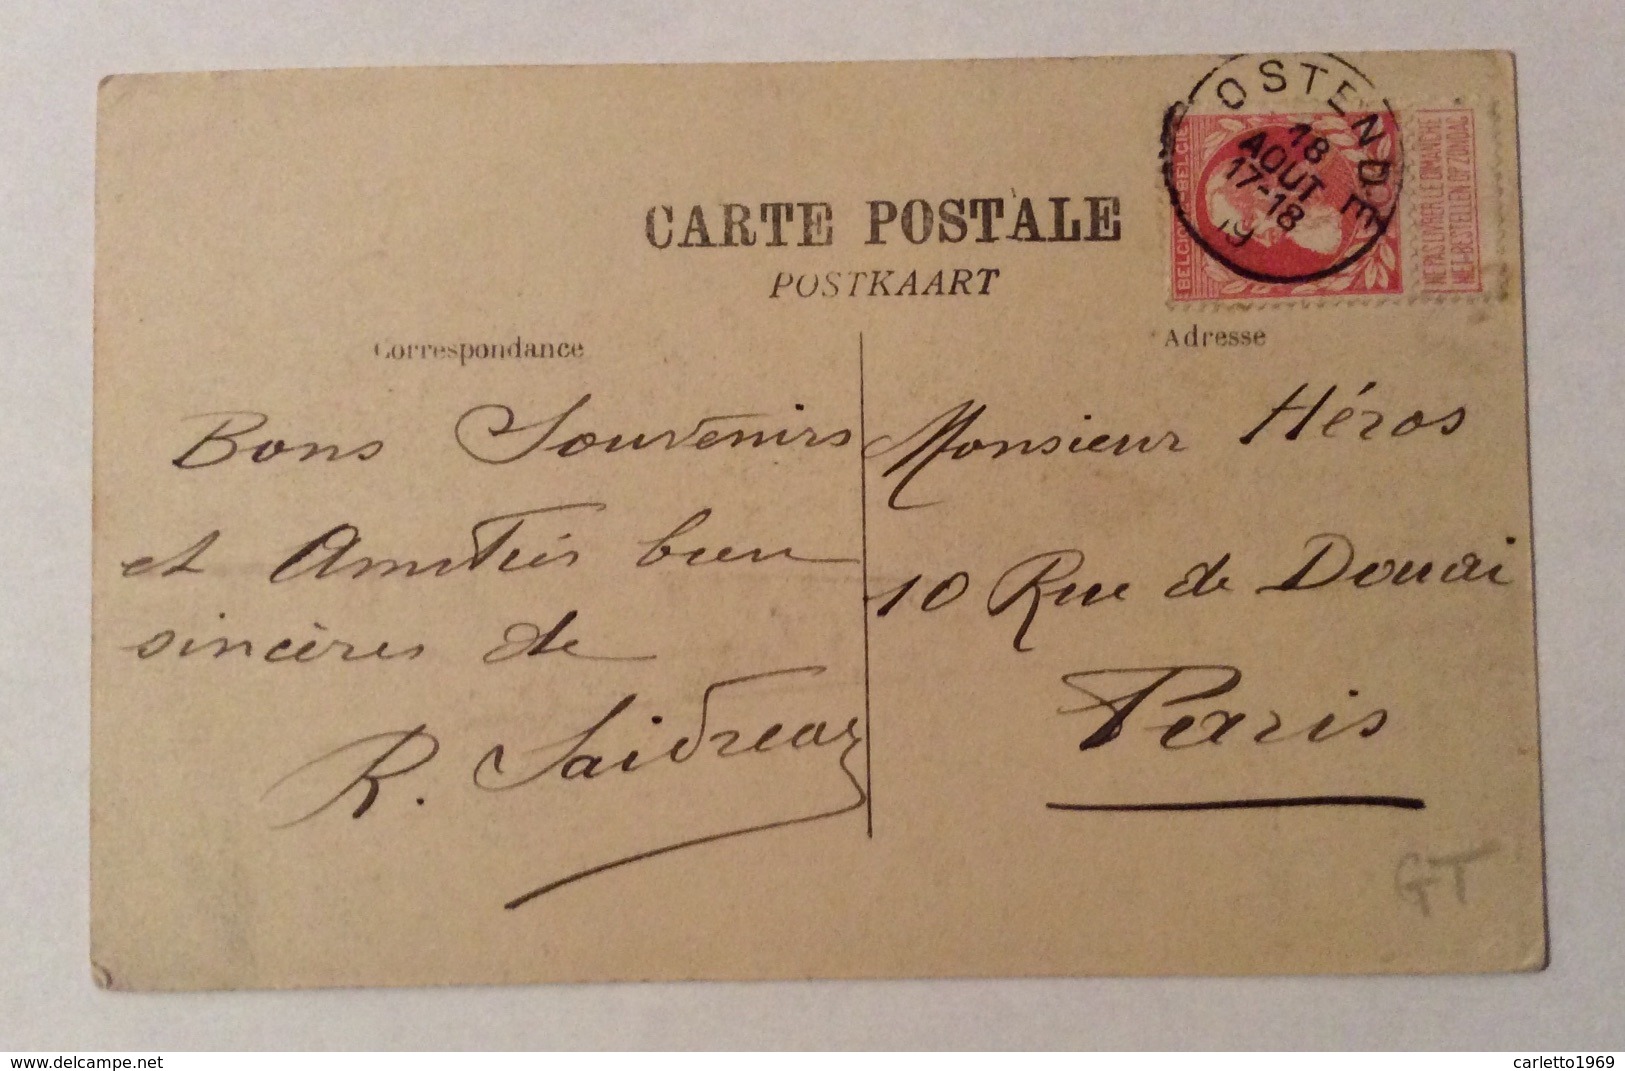 CARTE POSTALE
POSTKAART
OSTENDE
18
AOUT
17-18
BELGIQUE-BELGIE
NE PAS LIVRER LE DIMANCHE
NIET-BESTELLEN OP ZONDAG
Correspondance
Adresse
Bons Souvenirs
et Amitiés bien
sincères de
R.
Monsieur Héros
10 Rue de Douai
Paris
GT
www.delcampe.net
carletto1969